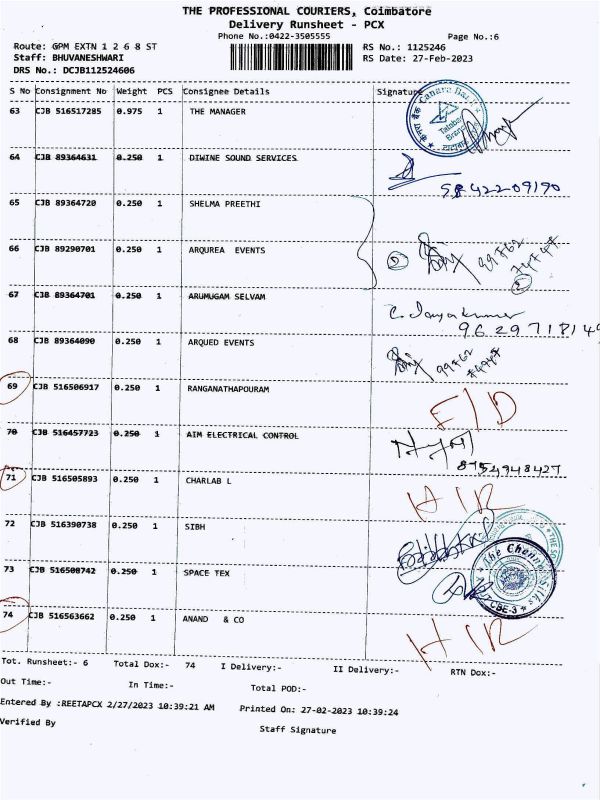 THE PROFESSIONAL COURIERS, Coimbatore
Delivery Runsheet - PCX
Phone No.:0422-3505555
Page No.:6
Route: GPM EXTN 1 2 6 8 ST
RS No.: 1125246
Staff: BHUVANESHWARI
RS Date: 27-Feb-2023
DRS No.: DCJB112524606
S No Consignment No Weight PCS Consignee Details Signature
63 CJB 516517285 0.975 1 THE MANAGER
Canara Bank
Tatabad
Branch
64 CJB 89364631 0.250 1 DIWINE SOUND SERVICES
65 CJB 89364720 0.250 1 SHELMA PREETHI
66 CJB 89290701 0.250 1 ARQUREA EVENTS
67 CJB 89364701 0.250 1 ARUMUGAM SELVAM
9629718149
68 CJB 89364090 0.250 1 ARQUED EVENTS
69 CJB 516506917 0.250 1 RANGANATHAPOURAM
70 CJB 516457723 0.250 1 AIM ELECTRICAL CONTROL
8754948427
71 CJB 516505893 0.250 1 CHARLAB L
72 CJB 516390738 0.250 1 SIBH
73 CJB 516508742 0.250 1 SPACE TEX
The Chennai Silks
CBE-3
74 CJB 516563662 0.250 1 ANAND & CO
Tot. Runsheet:- 6 Total Dox:- 74 I Delivery:- II Delivery:- RTN Dox:-
Out Time:- In Time:- Total POD:-
Entered By :REETAPCX 2/27/2023 10:39:21 AM Printed On: 27-02-2023 10:39:24
Verified By Staff Signature